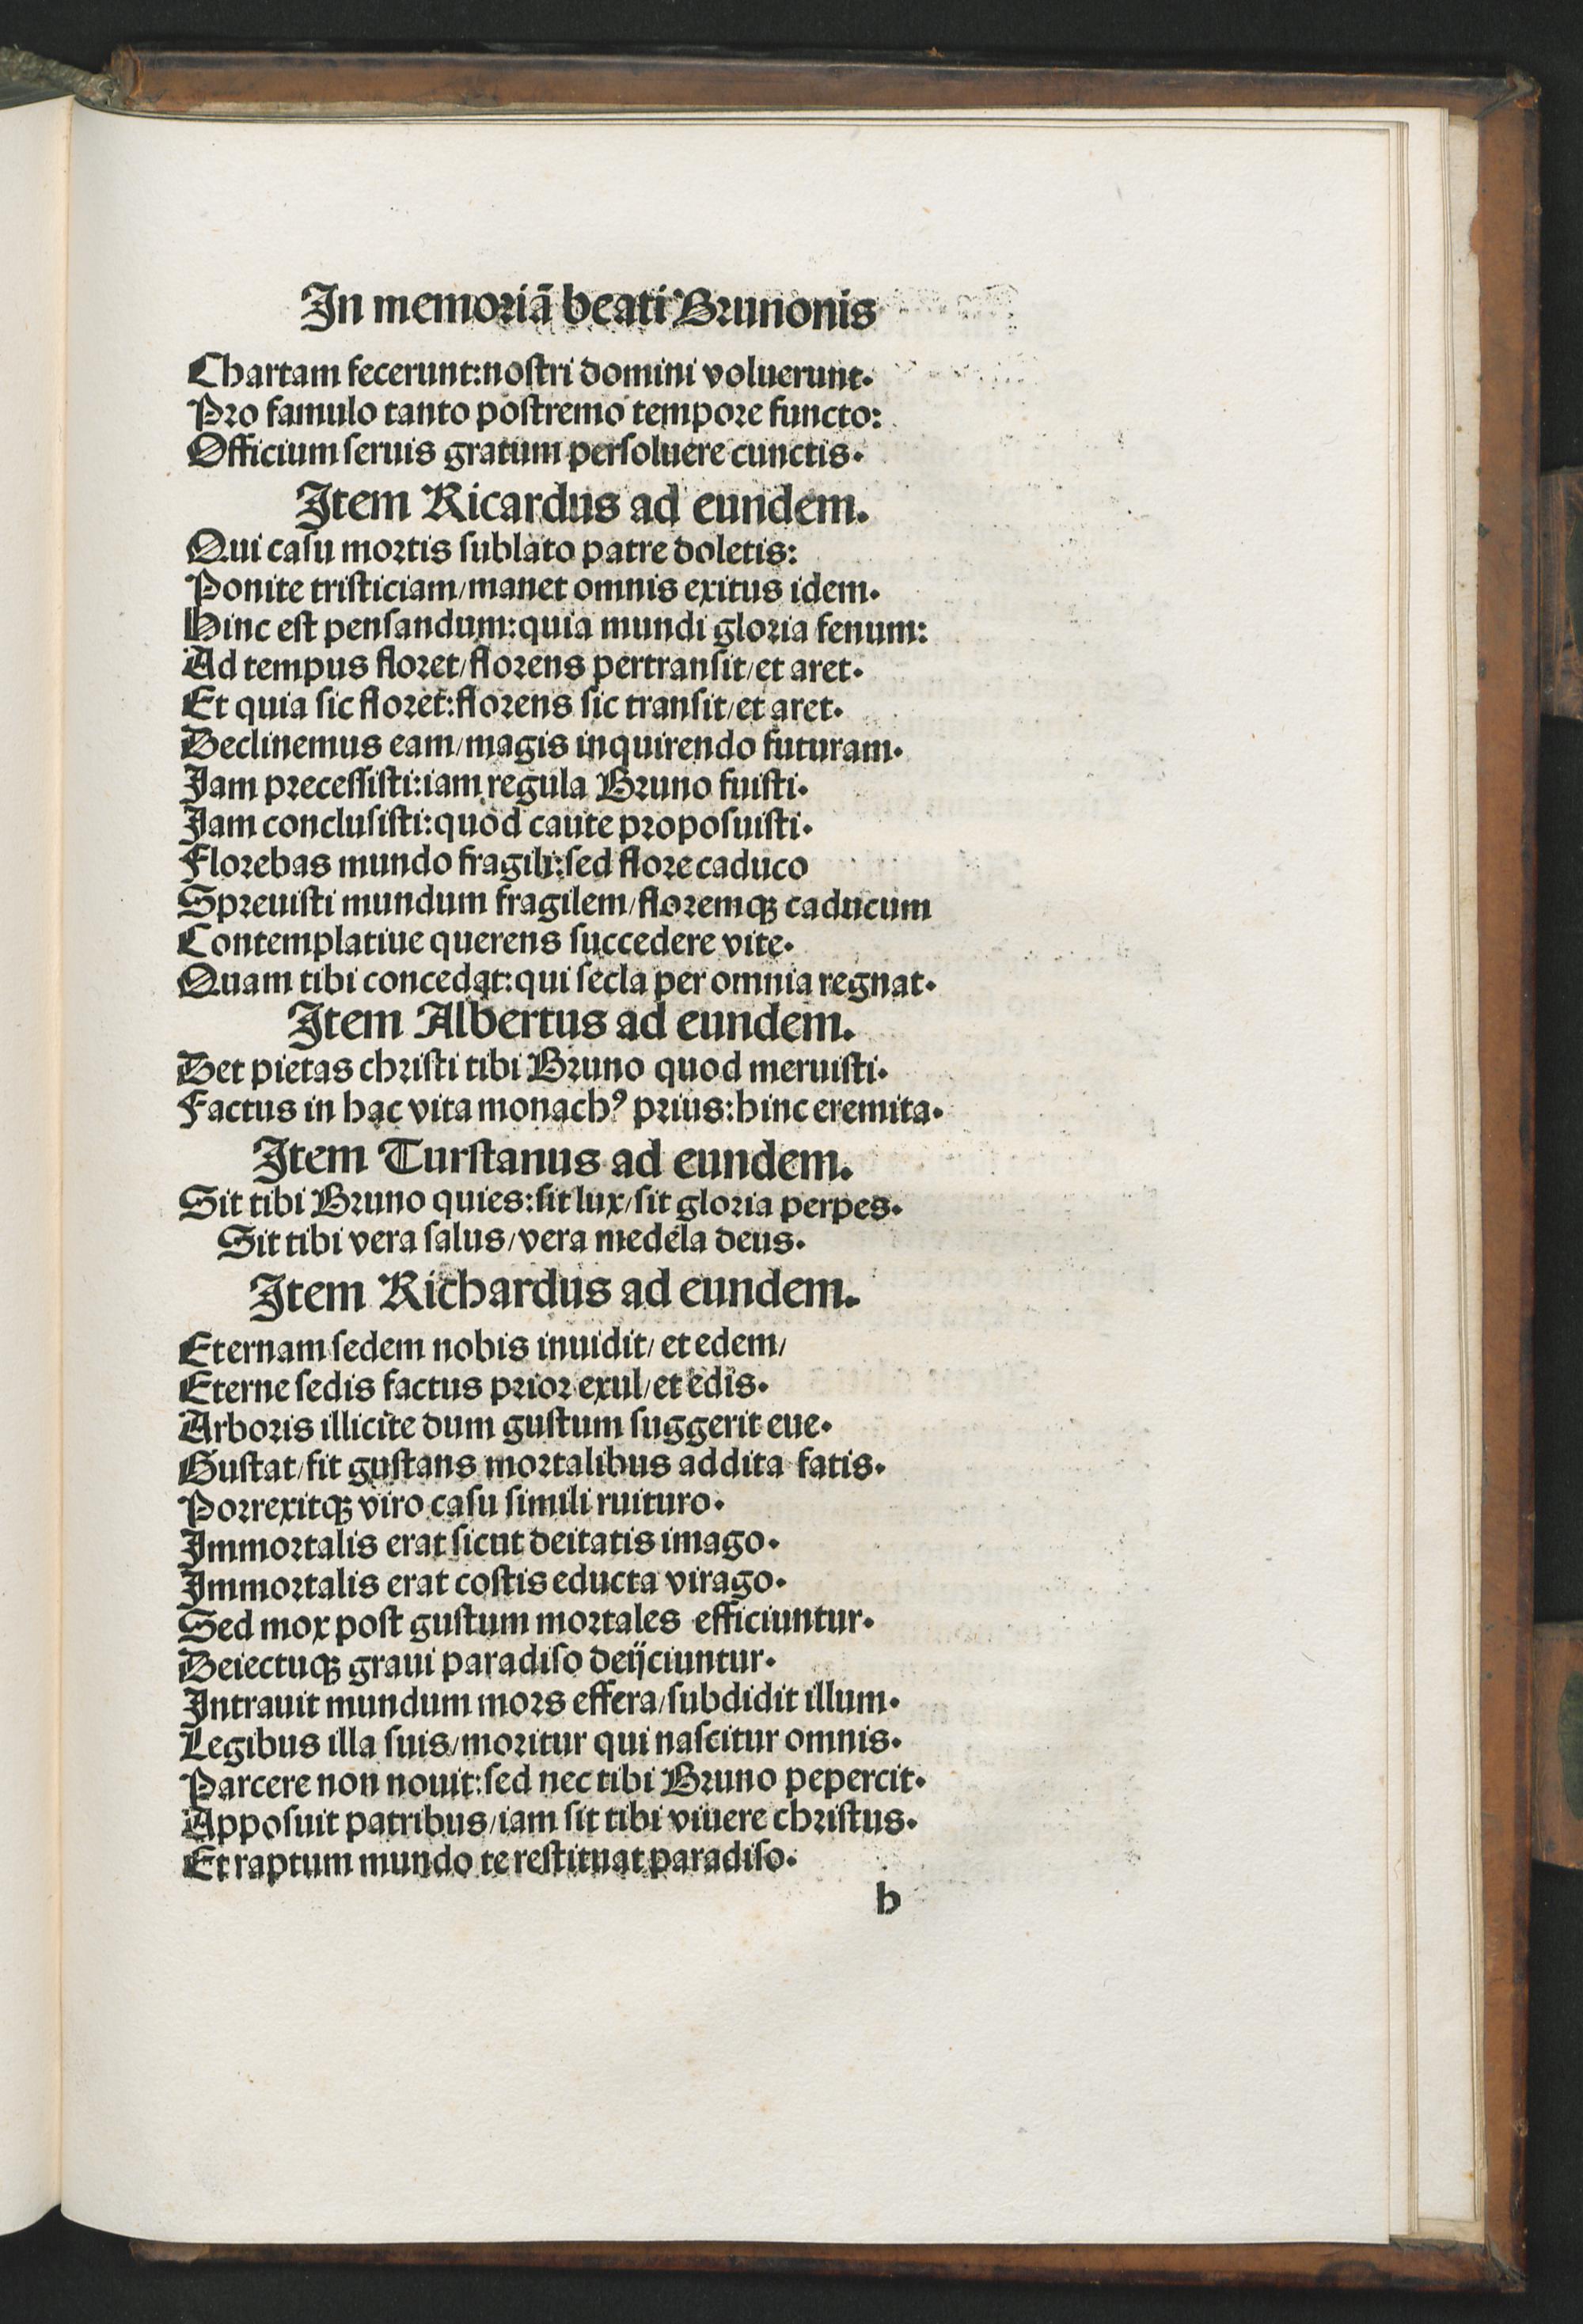 In memoriā beati Brunonis
Chartam fecerunt:nostri domini voluerunt.
Pro famulo tanto postremo tempore functo:
Officium seruis gratum persoluere cunctis.
Item Ricardus ad eundem.
Qui casu mortis sublato patre doletis:
Ponite tristiciam/manet omnis exitus idem.
Hinc est pensandum:quia mundi gloria fenum:
Ad tempus floret/florens pertransit/et aret.
Et quia sic floret:florens sic transit/et aret.
Declinemus eam/magis inquirendo futuram.
Iam precessisti:iam regula Bruno fuisti.
Iam conclusisti:quod caute proposuisti.
Florebas mundo fragili:sed flore caduco
Spreuisti mundum fragilem/floremqꝫ caducum
Contemplatiue querens succedere vite.
Quam tibi concedat:qui secla per omnia regnat.
Item Albertus ad eundem.
Det pietas christi tibi Bruno quod meruisti.
Factus in hac vita monachꝰ prius:hinc eremita.
Item Turstanus ad eundem.
Sit tibi Bruno quies:sit lux/sit gloria perpes.
Sit tibi vera salus/vera medela deus.
Item Richardus ad eundem.
Eternam sedem nobis inuidit/ et edem/
Eterne sedis factus prior exul/et edis.
Arboris illicite dum gustum suggerit eue.
Gustat/fit gustans mortalibus addita fatis.
Porrexitqꝫ viro casu simili ruituro.
Immortalis erat sicut deitatis imago.
Immortalis erat costis educta virago.
Sed mox post gustum mortales efficiuntur.
Deiectuqꝫ graui paradiso deijciuntur.
Intrauit mundum mors effera/subdidit illum.
Legibus illa suis/moritur qui nascitur omnis.
Parcere non nouit:sed nec tibi Bruno pepercit.
Apposuit patribus/iam sit tibi viuere christus.
Et raptum mundo te restituat paradiso.
b